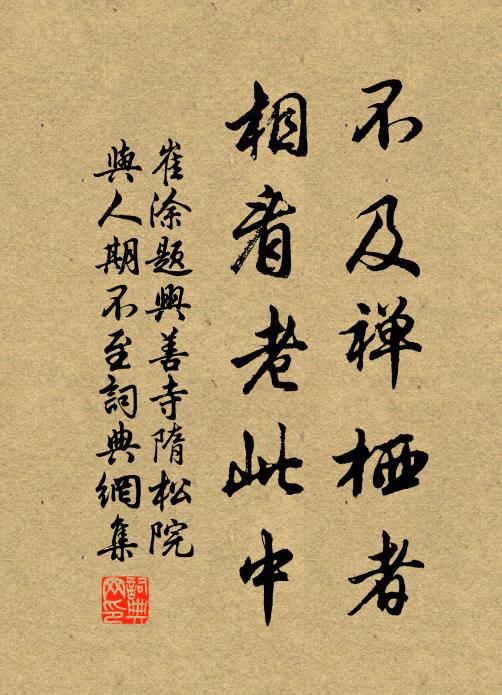 不及禅栖者
相看老此中
崔涂题興善寺隋松院
與人期不至詞典網集
詞典
网印